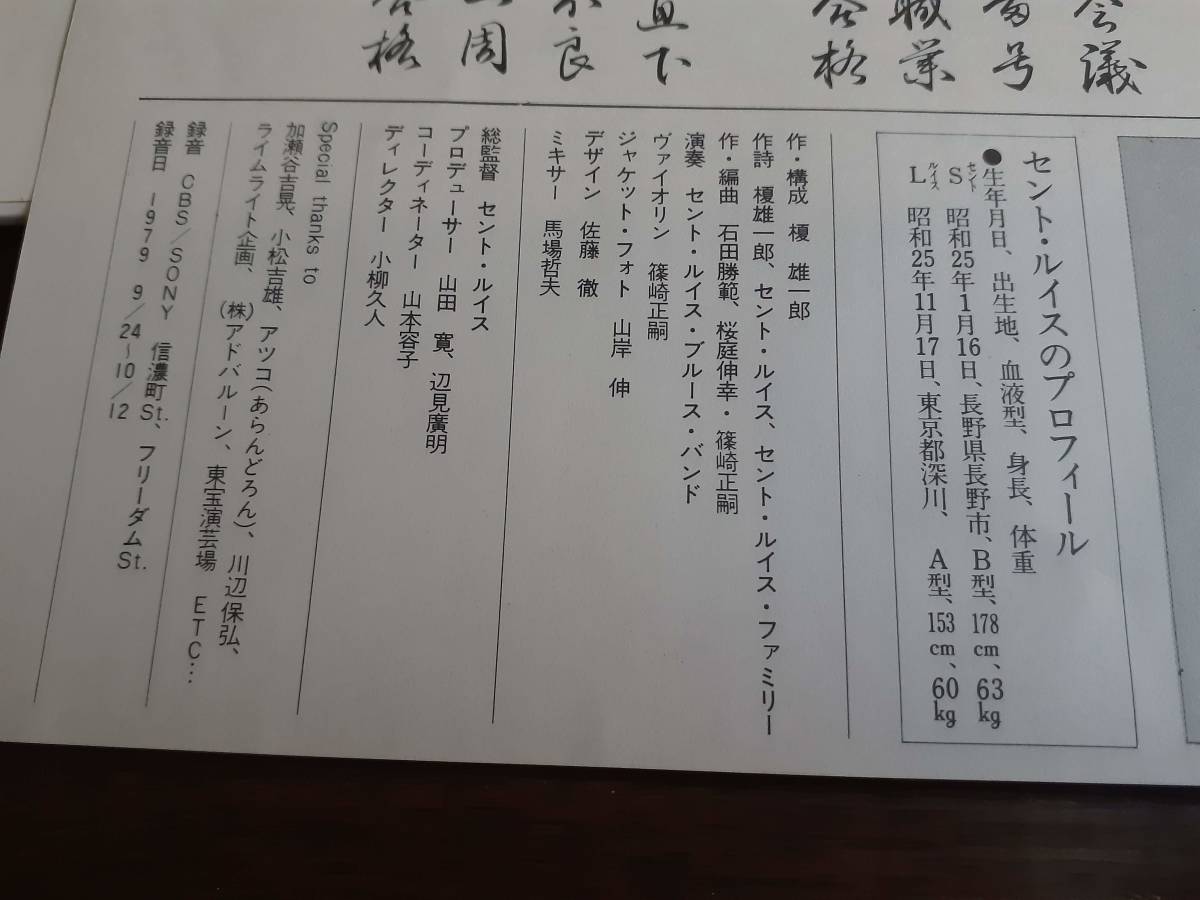 会議
番号
職業
合格
直下
奈良
一周
合格
セント・ルイスのプロフィール
●生年月日、出生地、血液型、身長、体重
S(セント) 昭和25年1月16日、長野県長野市、B型、178cm、63kg
L(ルイス) 昭和25年11月17日、東京都深川、A型、153cm、60kg
作・構成 榎 雄一郎
作詩 榎雄一郎、セント・ルイス、セント・ルイス・ファミリー
作・編曲 石田勝範、桜庭伸幸・篠崎正嗣
演奏 セント・ルイス・ブルース・バンド
ヴァイオリン 篠崎正嗣
ジャケット・フォト 山岸 伸
デザイン 佐藤 徹
ミキサー 馬場哲夫
総監督 セント・ルイス
プロデューサー 山田 寛、辺見廣明
コーディネーター 山本容子
ディレクター 小柳久人
Special thanks to
加瀬谷吉晃、小松吉雄、アツコ(あらんどろん)、川辺保弘、
ライムライト企画、(株)アドバルーン、東宝演芸場 ETC…
録音 CBS/SONY 信濃町St.、フリーダムSt.
録音日 1979 9/24~10/12